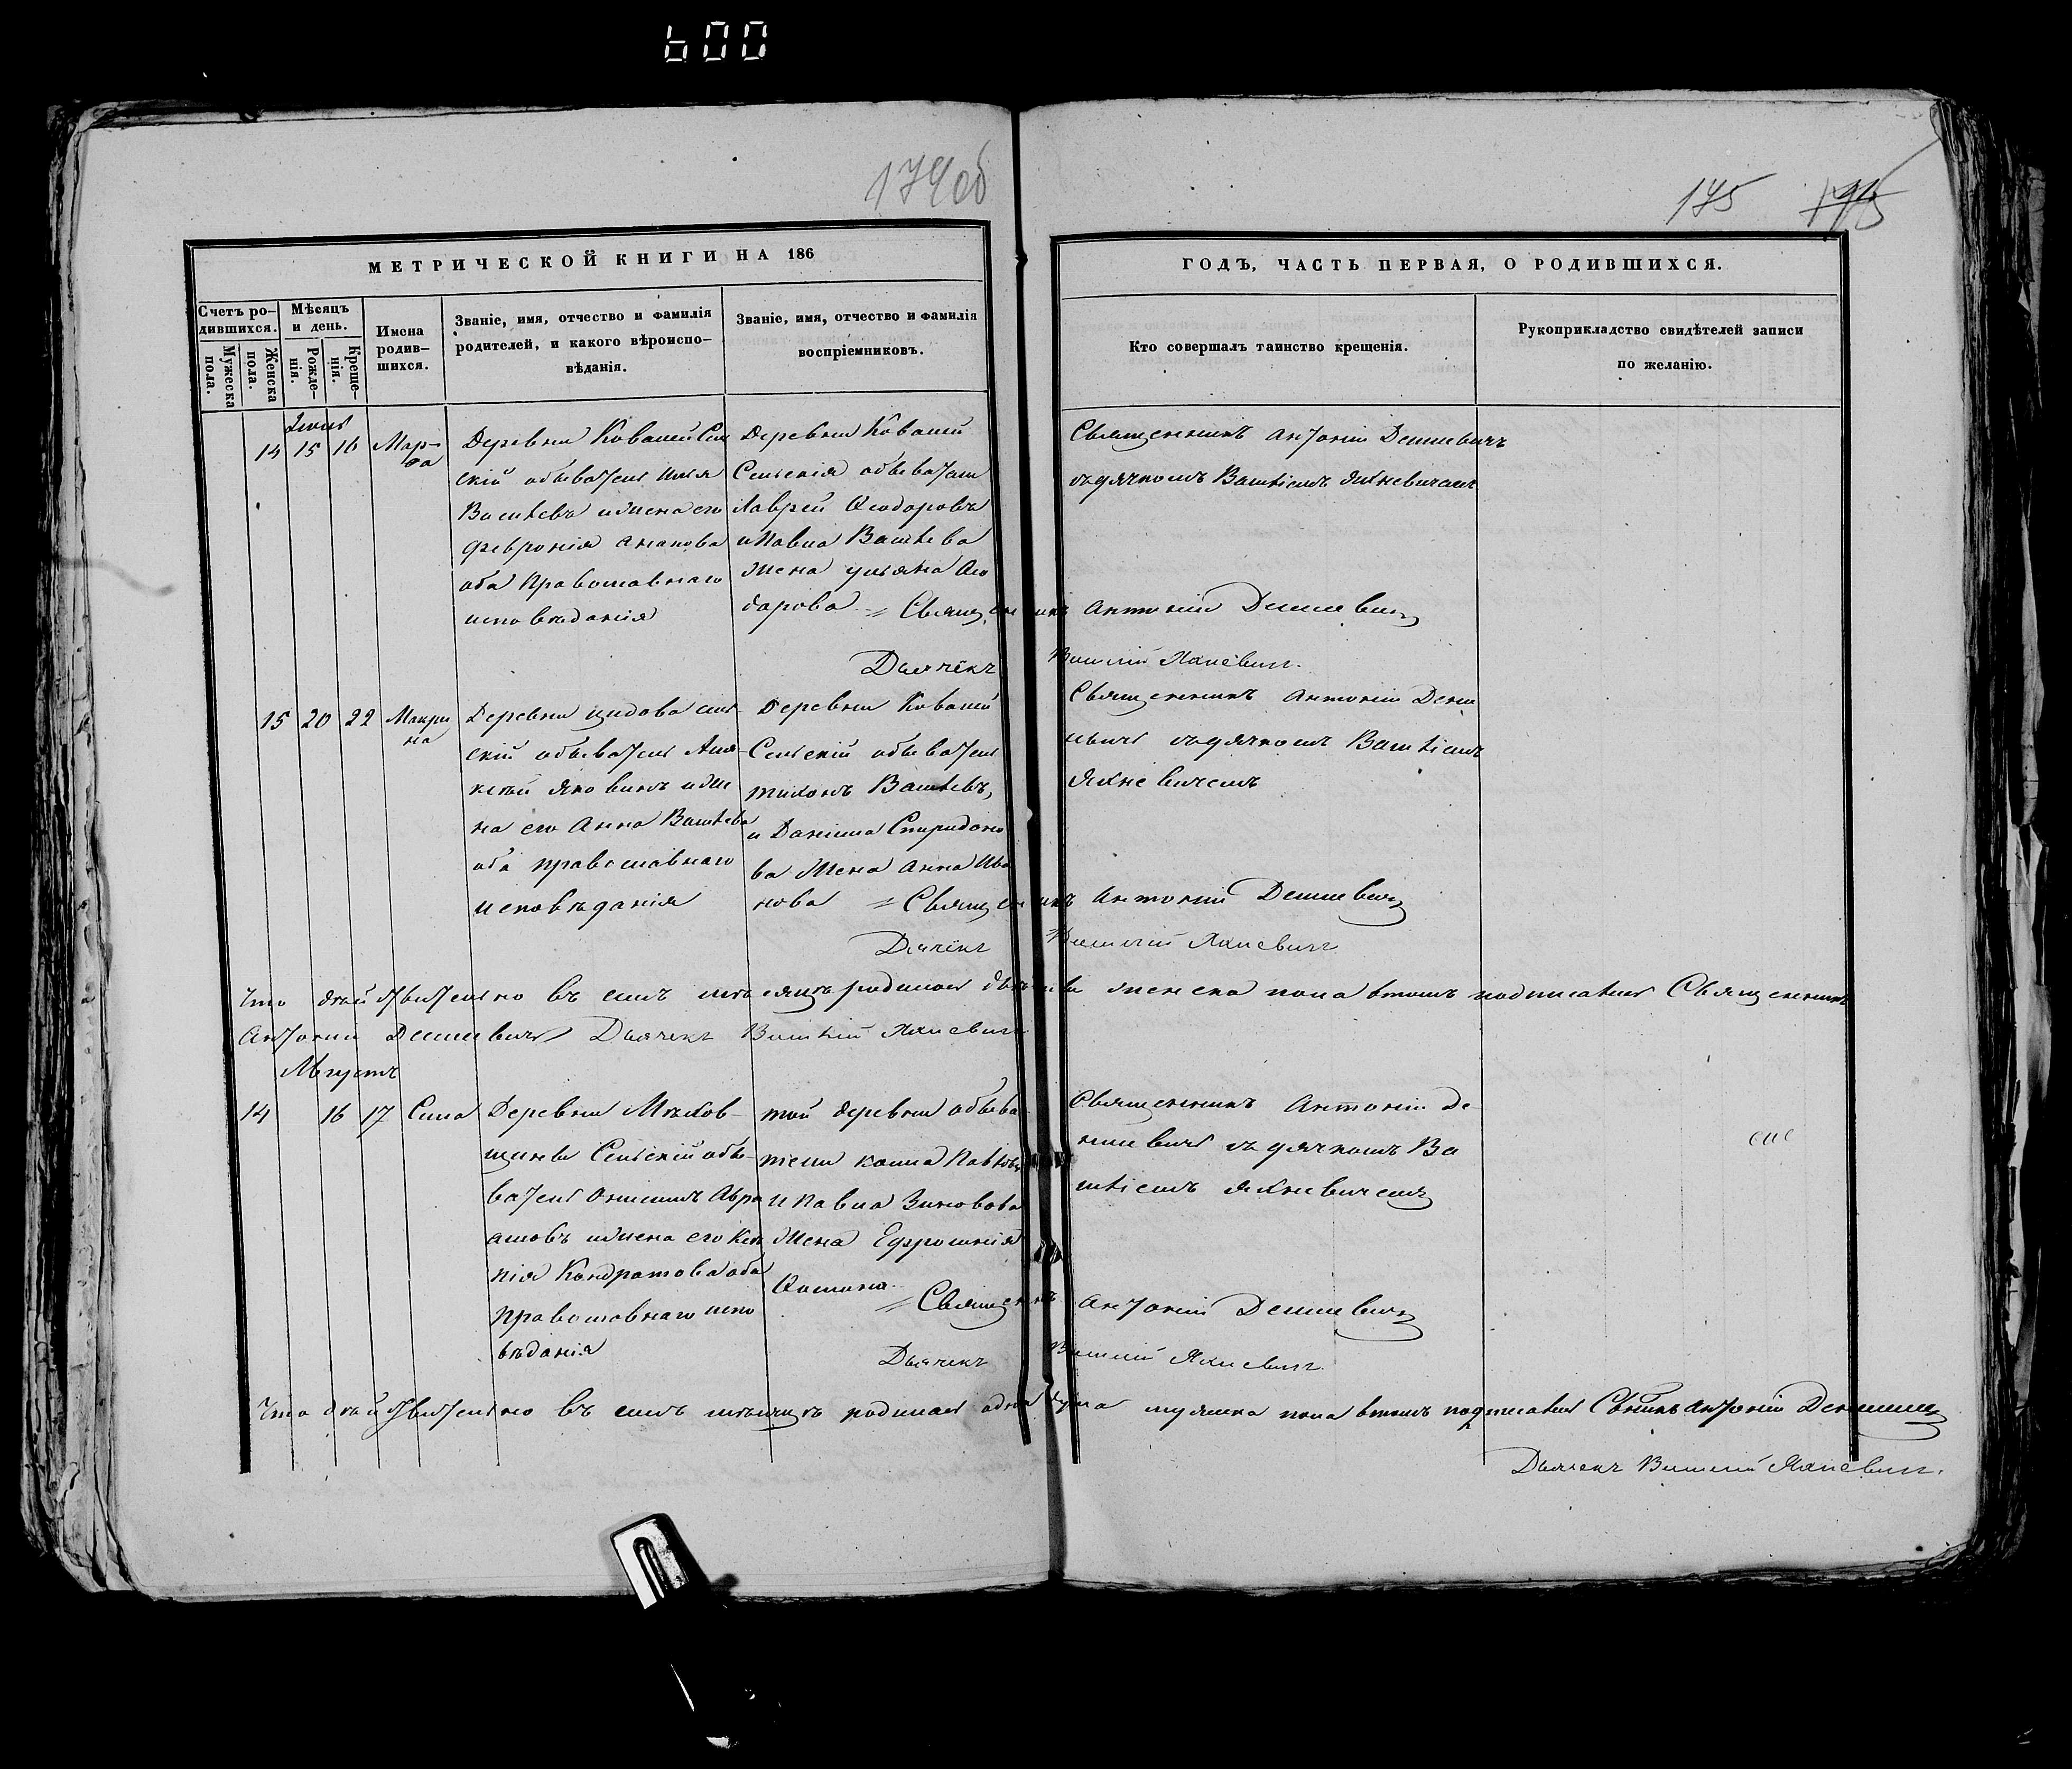 600
174об
175 195
МЕТРИЧЕСКОЙ КНИГИ НА 186
ГОДЪ, ЧАСТЬ ПЕРВАЯ, О РОДИВШИХСЯ.
Счетъ ро-
дившихся.
Мужеска
пола.
Женска
пола.
Мѣсяцъ
и день.
Рожде-
нія.
Креще-
нія.
Имена
родив-
шихся.
Званіе, имя, отчество и фамилія
родителей, и какого вѣроиспо-
вѣданія.
Званіе, имя, отчество и фамилія
воспріемниковъ.
Кто совершалъ таинство крещенія.
Рукоприкладство свидѣтелей записи
по желанію.
14 15 16 Мар-
ѳа
Деревни
скій обыватель Илья
Васильевъ и жена его
Февронія
оба Православнаго
исповѣданія
Деревни
Сельскія обыватели
Лаврен Ѳеодоровъ
и Павла Васильева
жена Ульяна Ѳео
дорова = Священникъ Антоній
Дьячекъ Василій Яхневичъ.
Священникъ Антоній
съ дячкомъ Василіемъ Яхневичемъ
15 20 22 Макри
на
Деревни
скій обыватель Але-
ксѣй
на его Анна Васильева
оба православнаго
исповѣданія
Деревни
Сельскій обыватель
Тихонъ Васильевъ,
и Даніила Спиридоно
ва жена Анна Ива
нова = Священникъ Антоній
Дьячекъ Василій Яхневичъ
Священникъ Антоній
съ дячкомъ Василіемъ
Яхневичемъ
Что дѣйствительно въ семъ мѣсяцѣ родилось женска пола втомъ подписались Священникъ
Антоній Дьячекъ Василій Яхневичъ
Августъ
14 16 17 Сила
Деревни
Сельскій обы-
ватель Онисимъ Авра
амовъ и жена его
Кондратова оба
православнаго испо
вѣданія
той деревни обыва-
тели
и Павла
жена Ефросинія
= Священникъ Антоній
Дьячекъ Василій Яхневичъ.
Священникъ Антоній
съ дячкомъ Ва
силіемъ Яхневичемъ
Что дѣйствительно въ семъ мѣсяцѣ родилась одна душа мужеска пола втомъ подписались Антоній
Дьячекъ Василій Яхневичъ.